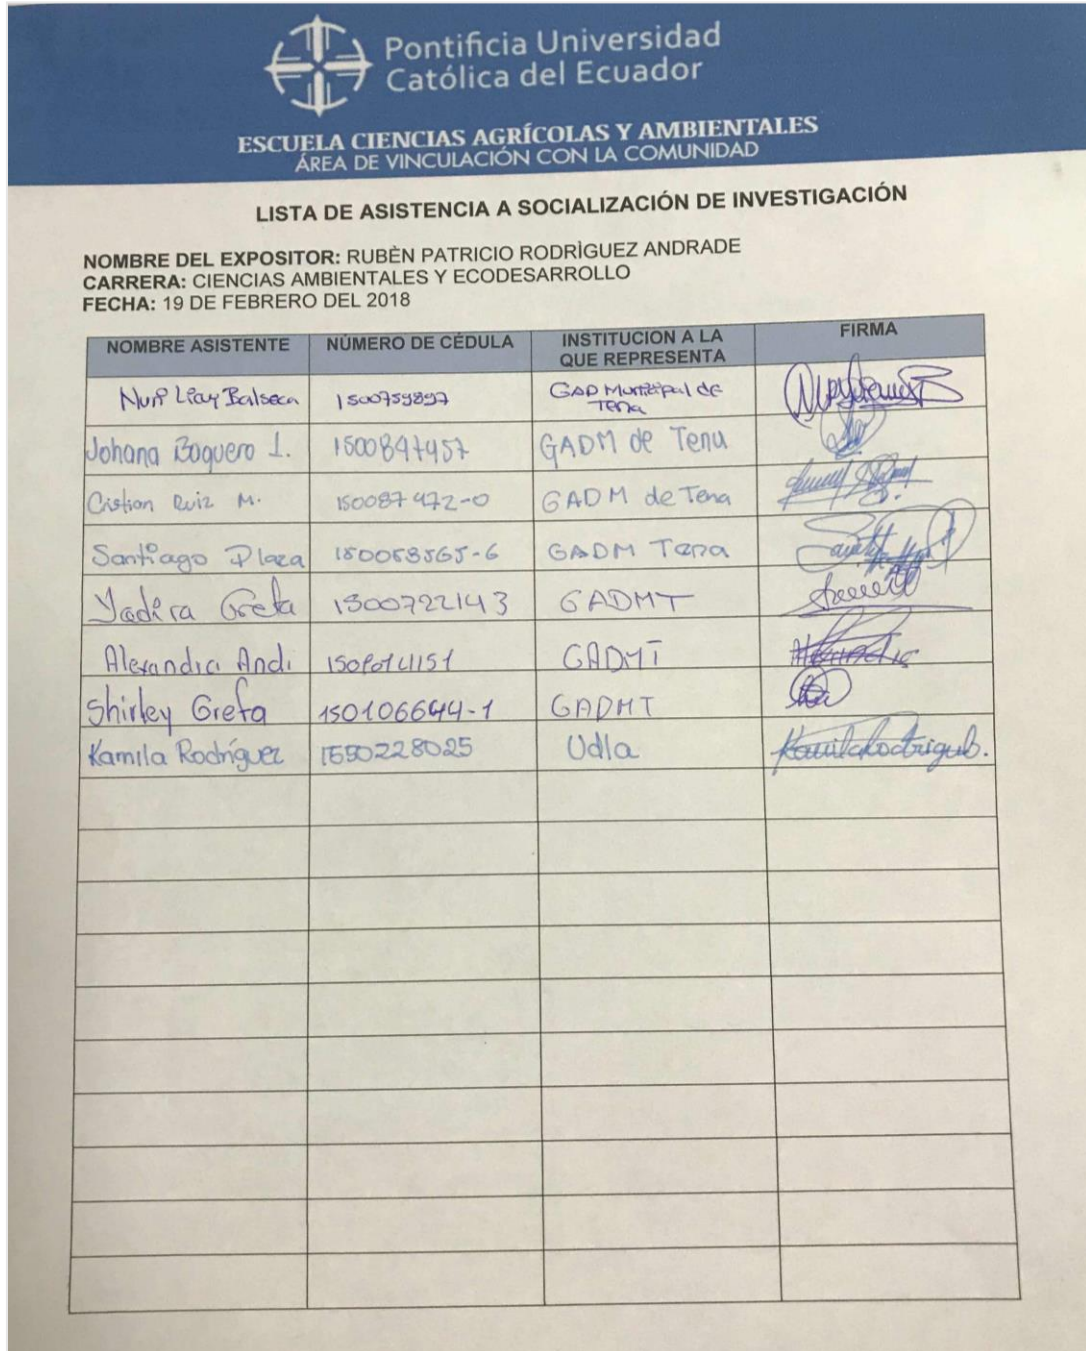 Pontificia Universidad
Católica del Ecuador
ESCUELA CIENCIAS AGRÍCOLAS Y AMBIENTALES
ÁREA DE VINCULACIÓN CON LA COMUNIDAD
LISTA DE ASISTENCIA A SOCIALIZACIÓN DE INVESTIGACIÓN
NOMBRE DEL EXPOSITOR: RUBÈN PATRICIO RODRÌGUEZ ANDRADE
CARRERA: CIENCIAS AMBIENTALES Y ECODESARROLLO
FECHA: 19 DE FEBRERO DEL 2018
NOMBRE ASISTENTE NÚMERO DE CÉDULA INSTITUCION A LA QUE REPRESENTA FIRMA
Balseca 1500759897 GAD Municipal de Tena
Johana Baquero I. 1500847457 GADM de Tena
Cristian Ruiz M. 150087472-0 GADM de Tena
Santiago Plaza GADM Tena
Yadira Grefa 1500722143 GADMT
Alexandra Andi GADMT
Shirley Grefa 150106644-1 GADMT
Kamila Rodríguez 1550228025 Udla